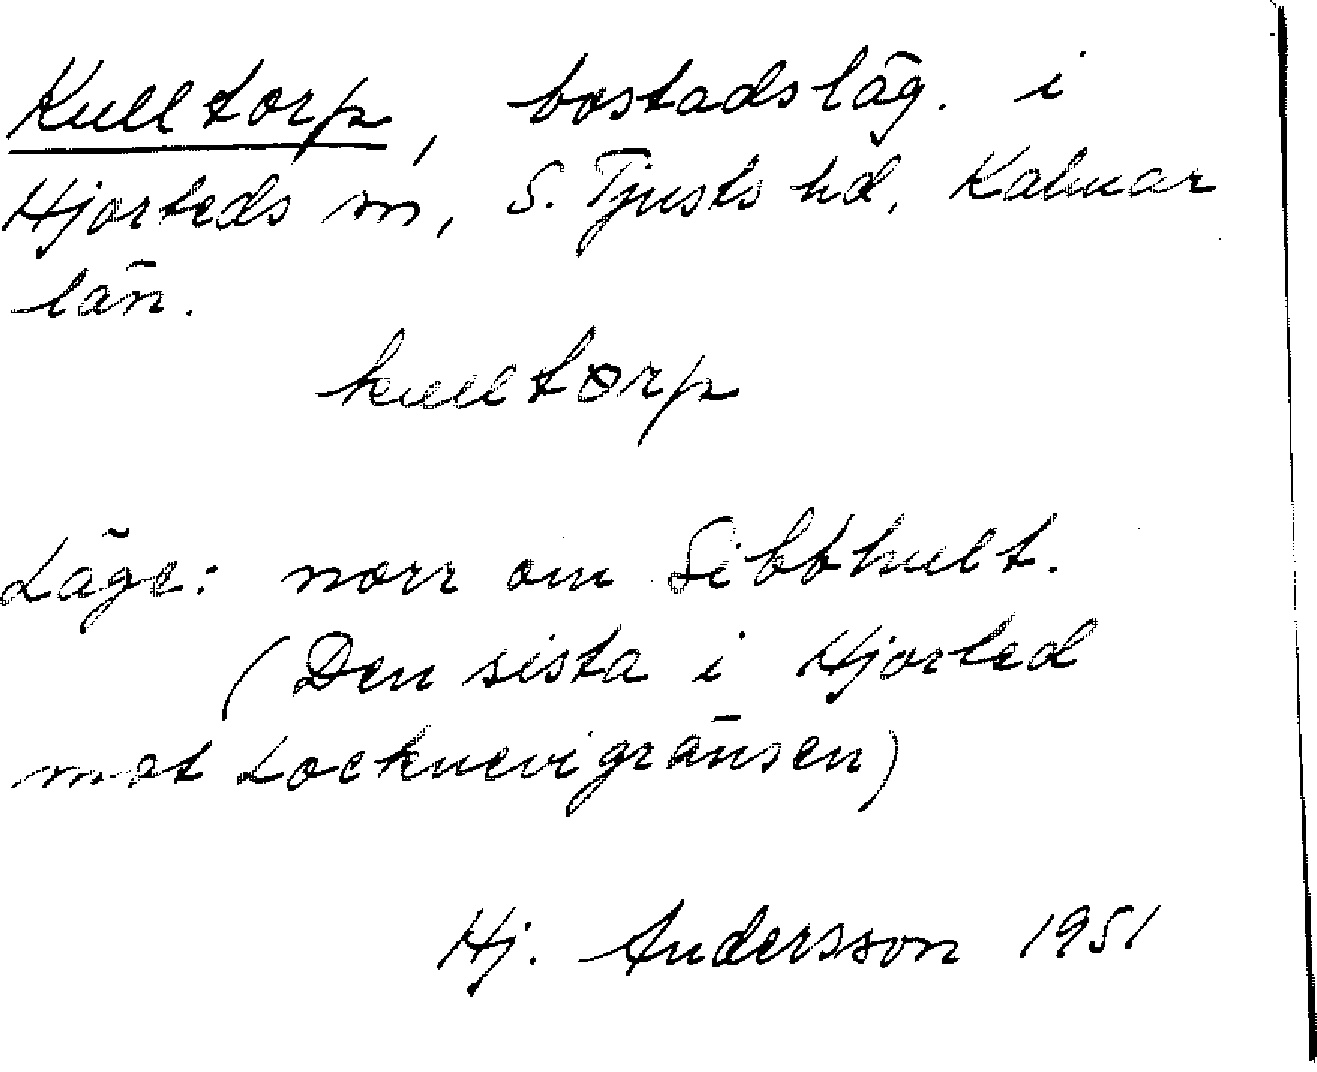 Kulltorp, bostadsläg. i
Hjorteds sn, S. Tjusts hd, Kalmar
län.
kulltorp
Läge: norr om Sibbhult.
(Den sista i Hjorted
mot Locknevigränsen)
Hj. Andersson 1951